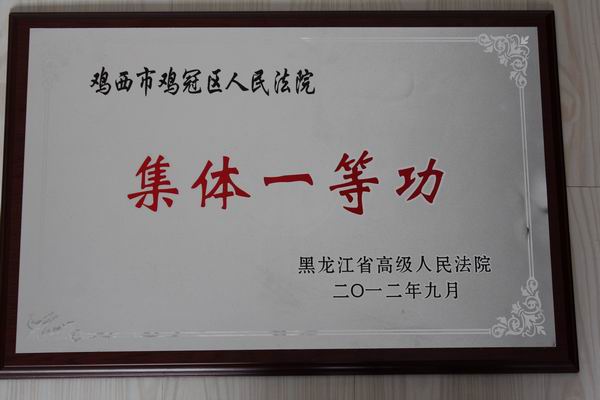 鸡西市鸡冠区人民法院
集体一等功
黑龙江省高级人民法院
二〇一二年九月